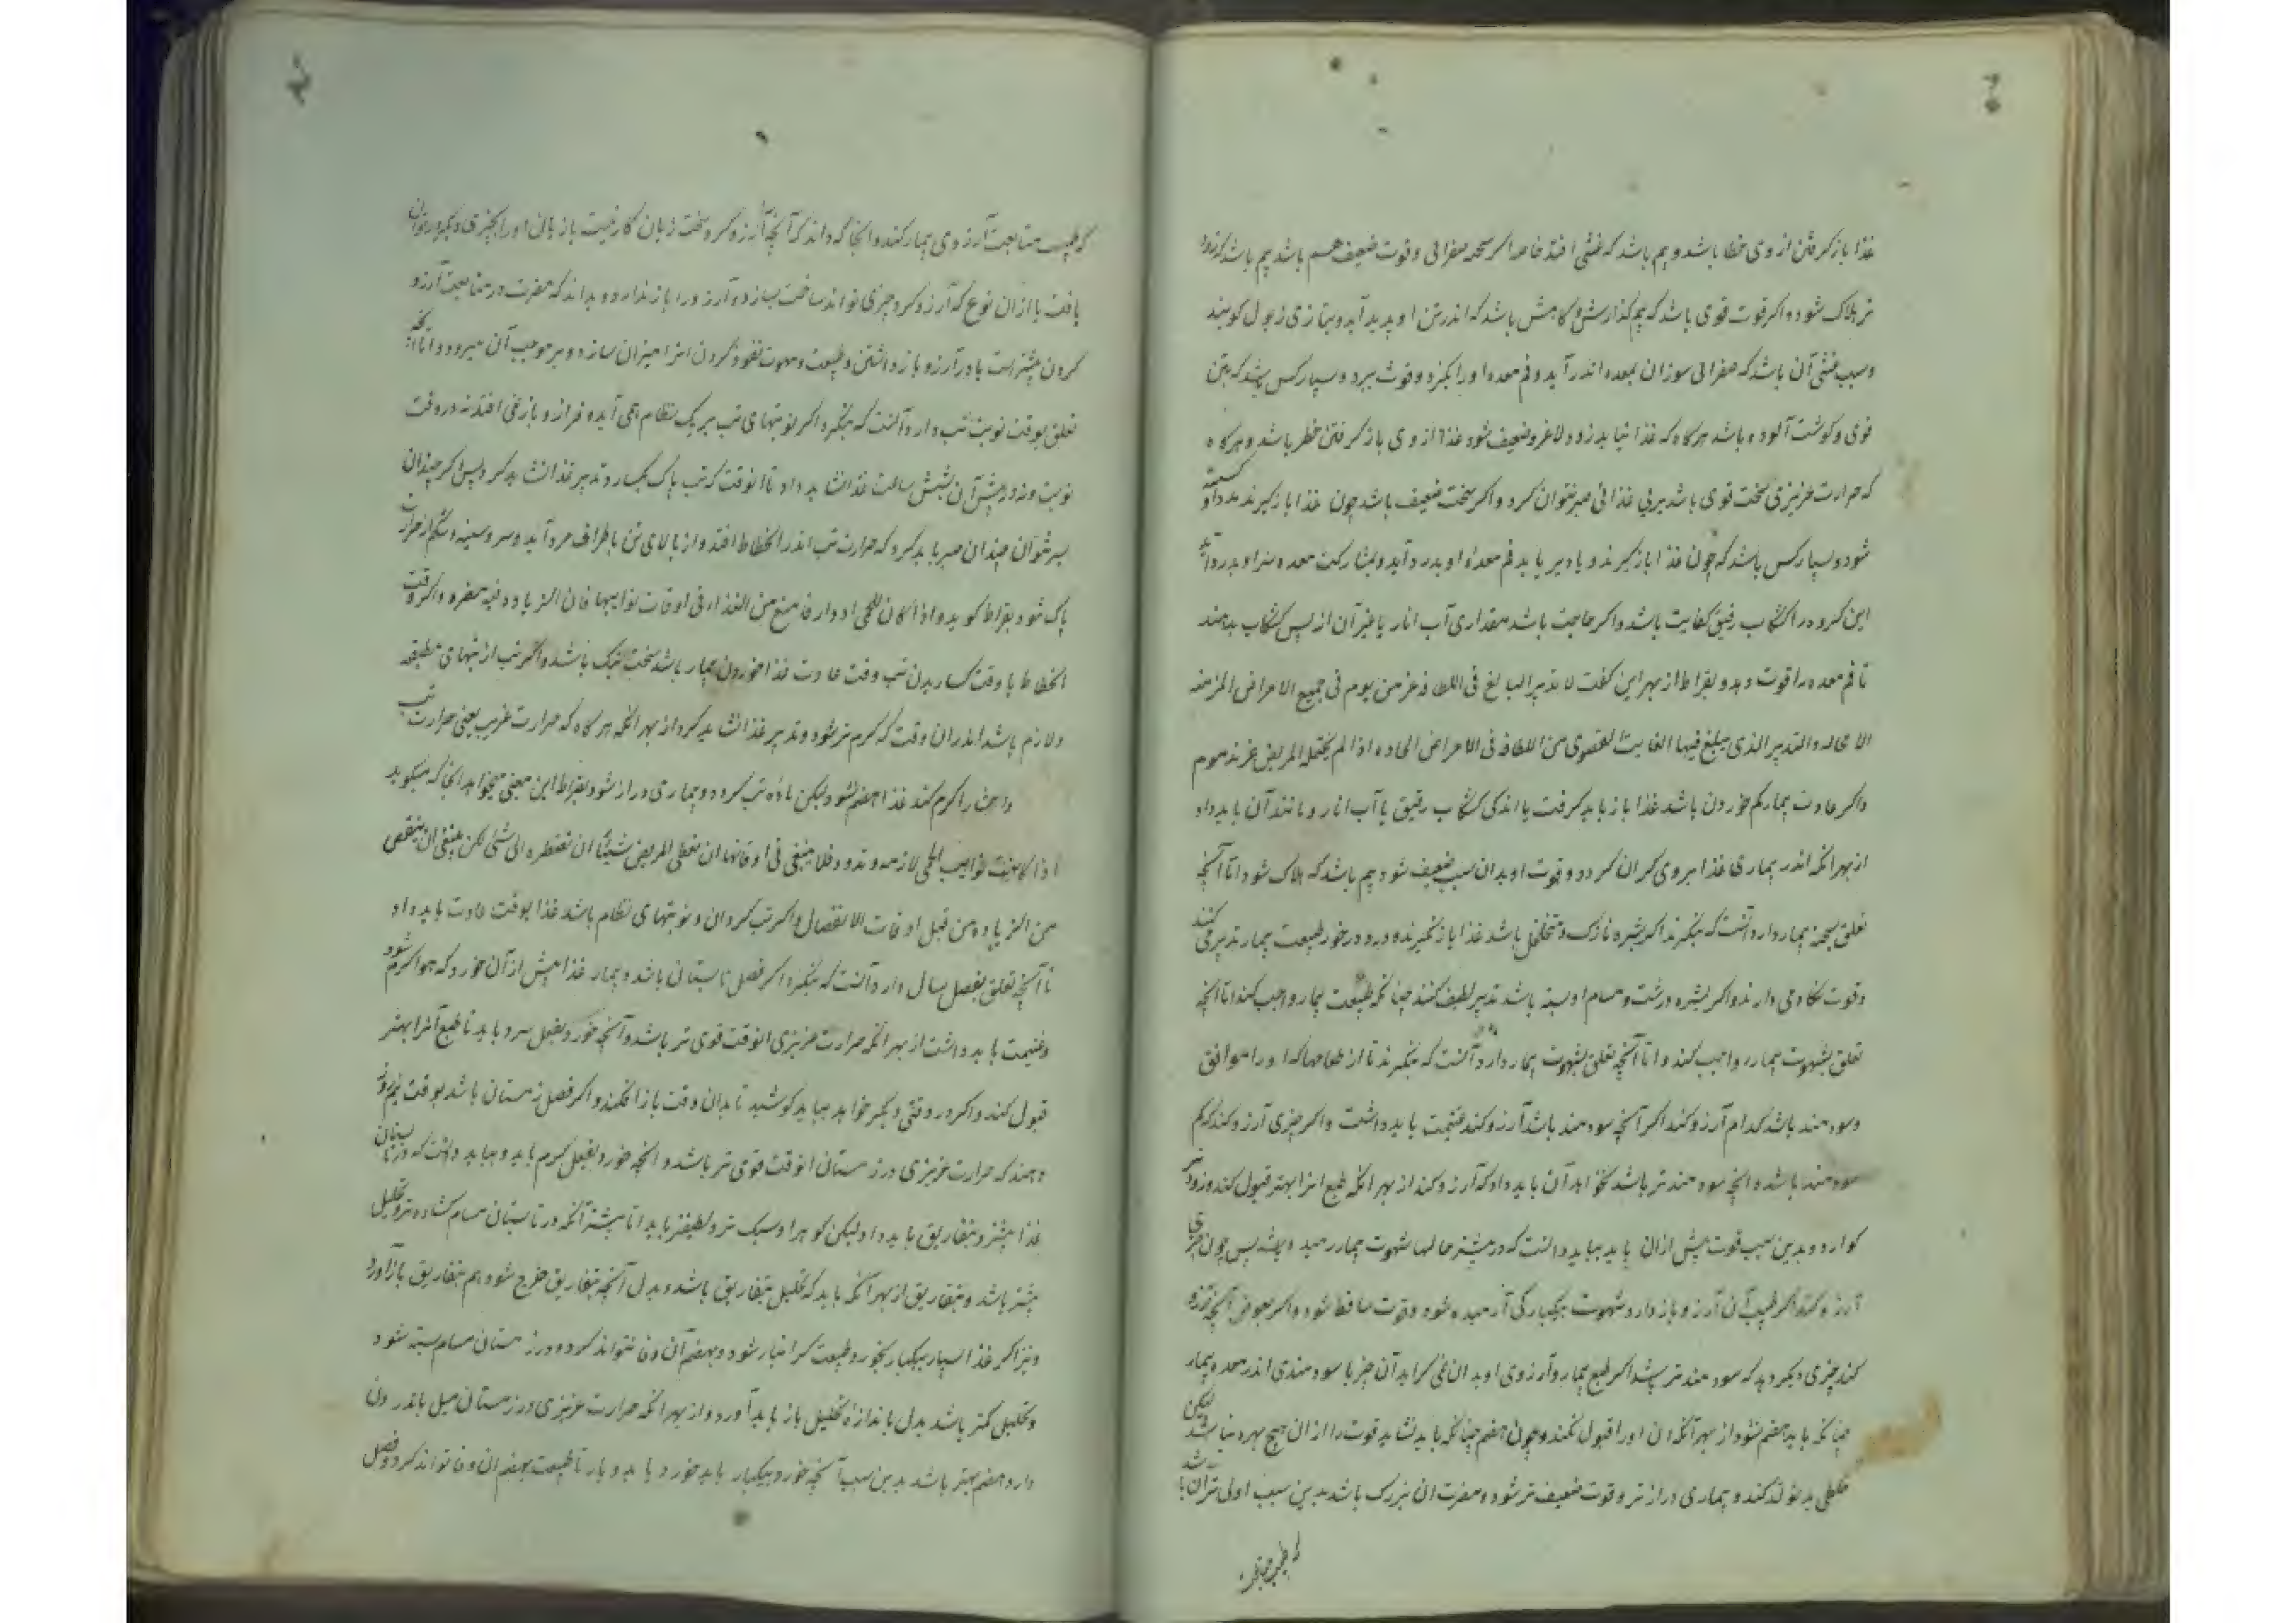 غذا باز کرفتن از وی خطا باشد و بیم باشد که غشی افتد خاصه اکر معده صفرائی و قوت ضعیف هم باشد بیم باشد که زود
تر هلاک شود و اکر قوت قوی باشد که بیم کذارش و کاهش باشد که اندر تن او پدید آید و بتازی ذبول کویند
و سبب غشی آن باشد که صفرائی سوزان بمعده اندر آید و فم معده او را بکزد و قوت ببرد و بسیار کس باشد که بتن
قوی و کوشت آلوده باشد هرکاه که غذا نیابد زود لاغر و ضعیف شود غذا از وی باز کرفتن خطر باشد و هرکاه
که حرارت غریزی سخت قوی باشد بر بی غذائی صبر نتوان کرد و اکر سخت ضعیف باشد چون غذا باز کیرند
شود و بسیار کس باشد که چون غذا باز کیرند و یا دیر یابد فم معده او بدرد آید و بمشارکت معده سر او بدرد آید
این کروه را کشکاب رقیق کفایت باشد و اکر حاجت باشد مقداری آب انار یا غیر آن از پس کشکاب بدهند
تا فم معده را قوت دهد و بقراط از بهر این کفت لا تدبیر البالغ فی اللطافه عزمن یوم فی جمیع الامراض المزمنه
لا محاله و التدبیر الذی یبلغ فیها الغایت القصوی من اللطافه فی الامراض الحاده اذا لم یحتمله المریض غر مذموم
و اکر عادت بیمار کم خوردن باشد غذا باز باید کرفت یا اندکی کشکاب رقیق یا آب انار و مانند آن باید داد
از بهر آنکه اندر بیماری غذا بر وی کران کردد و قوت او بدان سبب ضعیف شود بیم باشد که هلاک شود اما آنچه
تعلق بسحنه بیمار دارد آنست که بنکرند اکر بشره نازک و متخلخل باشد غذا باز نکیرند و در خور طبیعت بیمار تدبیر می کنند
و قوت نکاه می دارند و اکر بشره درشت و مسام او بسته باشد تدبیر لطیف کنند چنانکه طبیعت بیمار واجب کند اما آنچه
تعلق بشهوت بیمار واجب کند و اما آنچه تعلق بشهوت بیمار دارد آنست که بنکرند تا از طعامها که او را موافق
و سودمند باشد کدام آرزو کند اکر آنچه سودمند باشد آرزو کند غنیمت باید داشت و اکر چیزی آرزو کند که کم
سودمند باشد و آنچه سودمند تر باشد نخواهد آن باید داد که آرزو کند از بهر آنکه طبع انرا بهتر قبول کند و زودتر
کوارد و بدین سبب قوت بیش ازان یابد بباید دانست که در بیشتر حالها شهوت بیمار رمیده باشد پس چون چیزی
آرزو کند اکر طبیب آن آرزو باز دارد شهوت بیکبارکی آرمیده شود و قوت ساقط شود و اکر بعوض آنچه آرزو
کند چیزی دیکر دهد که سودمند تر باشد اکر طبع بیمار و آرزوی او بدان نمی کراید آن چیز با سودمندی اندر معده بیمار
چنانکه باید هضم نشود از بهر آنکه ان او را قبول نکند و چون هضم چنانکه باید نشاید قوت را ازان هیچ بهره نباشد لیکن
خلطی بد تولد کند و بیماری دراز تر و قوت ضعیف تر شود و مضرت ان بزرک باشد بدین سبب اولی تر آن باشد
که طبیب متابعت
که طبیب متابعت آرزوی بیمار کند و آنجا که داند که آنچه آرزو کرد سخت زیان کار نیست باز یانی او را بچیزی دیکر در توان
یافت یا ازان نوع که آرزو کرد چیزی تواند ساخت بسازد و آرزو را باز ندارد و بداند که مضرت در متابعت آرزو
کردن بیشتر است یا در آرزو باز داشتن و طبیعت و شهوت نفور کردن انرا میزان سازد و بر موجب آن میرود و اما آنچه
تعلق بوقت نوبت تب دارد آنست که بنکرد اکر نوبتهای تب بر یک نظام همی آید و فراز و باز نمی افتد نه در وقت
نوبت و نه در پیش آن بشش ساعت غذا نشاید داد تا آنوقت که تب پاک بکسارد تدبیر غذا نشاید کرد پس اکر چندان
صبر نتوان چندان صبر باید کرد که حرارت تب اندر انحطاط افتد و از بالای تن باطراف فرود آید و سر و سینه و شکم از حرارت
پاک شود بقراط کوید و اذا کان للحمی ادوار فامنع من الغذاء فی اوقات نوایبها فان الزیاده فیه مضره و اکر وقت
انحطاط یا وقت کساریدن تب وقت عادت غذا خوردن بیمار باشد سخت نیک باشد و اکر تب از تبهای مطبقه
و لازم باشد اندران وقت که کرم تر شود تدبیر غذا نشاید کرد از بهر آنکه هرکاه که حرارت غریب یعنی حرارت تب
احشا را کرم کند غذا هضم نشود لیکن ماده تب کردد و بیماری دراز شود بقراط این معنی میخواهد آنجا که میکوید
اذا کانت نوایب الحمی لازمه و ندود فلا ینبغی فی اوقاتها ان تعطی المریض شیئا ان تضطره الی شئی لکن ینبغی ان ینقص
من الزیاده من قبل اوقات الانفصال و اکر تب کردان و نوبتهای نظام باشد غذا بوقت عادت باید داد
اما آنچه تعلق بفصل سال دارد آنست که بنکرد اکر فصل تابستانی باشد و بیمار غذا پیش از آن خورد که هوا کرم شود
و غنیمت باید داشت از بهر آنکه حرارت غریزی انوقت قوی تر باشد و آنچه خورد بفعل سرد باید تا طبع آنرا بهتر
قبول کند و اکر در وقتی دیکر خواهد بباید کوشید تا بدان وقت باز افکند و اکر فصل زمستان باشد بوقت نیم روز
دهند که حرارت غریزی در زمستان انوقت قوی تر باشد و آنچه خورد بفعل کرم باید و بباید دانست که در تابستان
غذا بیشتر و بتفاریق باید داد لیکن کوهر او سبک تر و لطیفتر باید اما بیشتر آنکه در تابستان مسام کشاده تر و تحلیل
بیشتر باشد و بتفاریق از بهر آنکه باید که تحلیل بتفاریق باشد و بدل آنچه بتفاریق خرج شود هم بتفاریق باز آورد
و نیز اکر غذا بسیار بیکبار بخورد طبیعت کرانبار شود و بهضم آن وفا نتواند کرد و در زمستان مسام بسته شود
و تحلیل کمتر باشد بدل باندازه تحلیل باز باید آورد و از بهر آنکه حرارت غریزی در زمستان میل باندرون
دارد هضم بهتر باشد بدین سبب آنچه خورد بیکبار باید خورد یا بدو بار تا طبیعت بهضم ان وفا تواند کرد و فصل